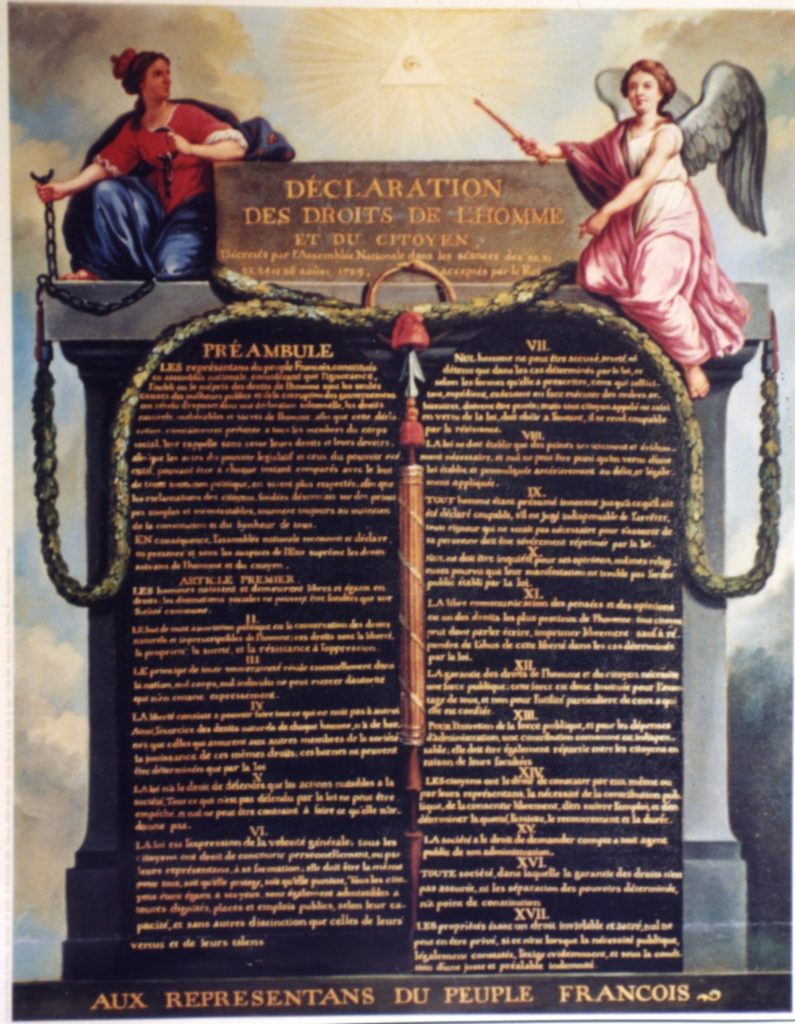 DÉCLARATION
DES DROITS DE L'HOMME
ET DU CITOYEN,
Décrétés par l'Assemblée Nationale dans les séances des 20, 21
23, 24 et 26 août 1789, acceptés par le Roi
PRÉAMBULE
LES représentans du peuple François, constitués
en assemblée nationale, considérant que l'ignorance
l'oubli ou le mépris des droits de l'homme sont les seules
causes des malheurs publics et de la corruption des gouvernemens
droits
sacrés de l'homme
tous les membres du corps
social, leur rappelle sans cesse leurs droits et leurs devoirs
que les actes du pouvoir législatif et ceux du pouvoir
pouvant être à chaque instant comparés avec le but
de toute institution politique, en soient plus respectés, afin que
les reclamations des citoyens, fondées désormais sur des prin
simples et incontestables, tournent toujours au maintien
de la constitution et du bonheur de tous.
EN conséquence, l'assemblée nationale reconnoit et déclare,
en presence et sous les auspices de l'Etre suprême les droits
suivans de l'homme et du citoyen.
ARTICLE PREMIER.
LES hommes naissent et demeurent libres et égaux en
droits. les distinctions sociales ne peuvent être fondées que sur
l'utilité commune.
II.
LE but de toute association politique est la conservation des droits
naturels et imprescriptibles de l'homme; ces droits sont la liberté,
la propriété, la sureté, et la résistance à l'oppression.
III.
LE principe de toute souveraineté réside essentiellement dans
la nation, nul corps, nul individu ne peut exercer d'autorité
qui n'en émane expressément.
IV.
LA liberté consiste a pouvoir faire tout ce qui ne nuit pas à autrui
Ainsi, l'exercice des droits naturels de chaque homme, n'a de bor-
nes que celles qui assurent aux autres membres de la société
la jouissance de ces mêmes droits; ces bornes ne peuvent
être déterminées que par la loi
V.
LA loi n'a le droit de défendre que les actions nuisibles à la
société. Tout ce qui n'est pas défendu par la loi ne peut être
empêché et nul ne peut être contraint à faire ce qu'elle n'or-
donne pas.
VI.
LA loi est l'expression de la volonté générale; tous les
citoyens ont droit de concourir personnellement, ou par
leurs représentans, à sa formation; elle doit être la même
pour tous, soit qu'elle protege, soit qu'elle punisse. Tous les cito-
yens étant égaux à ses yeux, sont également admissibles à
toutes dignités, places et emplois publics, selon leur ca-
pacité, et sans autres distinction que celles de leurs
vertus et de leurs talens
VII.
NUL homme ne peut être accusé, arreté, ni
détenu que dans les cas déterminés par la loi, et
selon les formes qu'elle a prescrites, ceux qui sollici-
tent, expédient, exécutent ou font exécuter des ordres ar-
bitraires, doivent être punis; mais tout citoyen appelé ou saisi
en vertu de la loi, doit obéir à l'instant, il se rend coupable
par la résistance.
VIII.
LA loi ne doit établir que des peines strictement et évidem-
ment nécessaires, et nul ne peut être puni qu'en vertu d'une
loi établie et promulguée antérieurement au délit, et légale-
ment appliquée.
IX.
TOUT homme étant présumé innocent jusqu'à ce qu'il ait
été déclaré coupable, s'il est jugé indispensable de l'arrêter,
toute rigueur qui ne serait pas nécessaire pour s'assurer de
sa personne doit être sévèrement réprimée par la loi.
X.
NUL ne doit être inquiété pour ses opinions, mêmes religi-
euses pourvu que leur manifestation ne trouble pas l'ordre
public établi par la loi.
XI.
LA libre communication des pensées et des opinions
est un des droits les plus precieux de l'homme: tout citoyen
peut donc parler écrire, imprimer librement: sauf à ré-
pondre de l'abus de cette liberté dans les cas déterminés
par la loi.
XII.
LA garantie des droits de l'homme et du citoyen nécessite
une force publique; cette force est donc instituée pour l'avan-
tage de tous, et non pour l'utilité particulière de ceux a qui
elle est confiée.
XIII.
POUR l'entretien de la force publique, et pour les dépenses
d'administration, une contribution commune est indispen-
sable; elle doit être également répartie entre les citoyens en
raison de leurs facultées.
XIV.
LES citoyens ont le droit de constater par eux même ou
par leurs représentans, la nécessité de la contribution pub-
lique, de la consentir librement, d'en suivre l'emploi, et d'en
déterminer la quotité, l'assiette, le recouvrement et la durée.
XV.
LA société a le droit de demander compte a tout agent
public de son administration.
XVI.
TOUTE société, dans laquelle la garantie des droits n'est
pas assurée, ni les séparation des pouvoirs déterminée,
n'a point de constitution
XVII.
LES propriétés étant un droit inviolable et sacré, nul ne
peut en être privé, si ce n'est lorsque la nécessité publique,
légalement constatée, l'exige evidemment, et sous la condi-
tion d'une juste et préalable indemnité.
AUX REPRESENTANS DU PEUPLE FRANCOIS